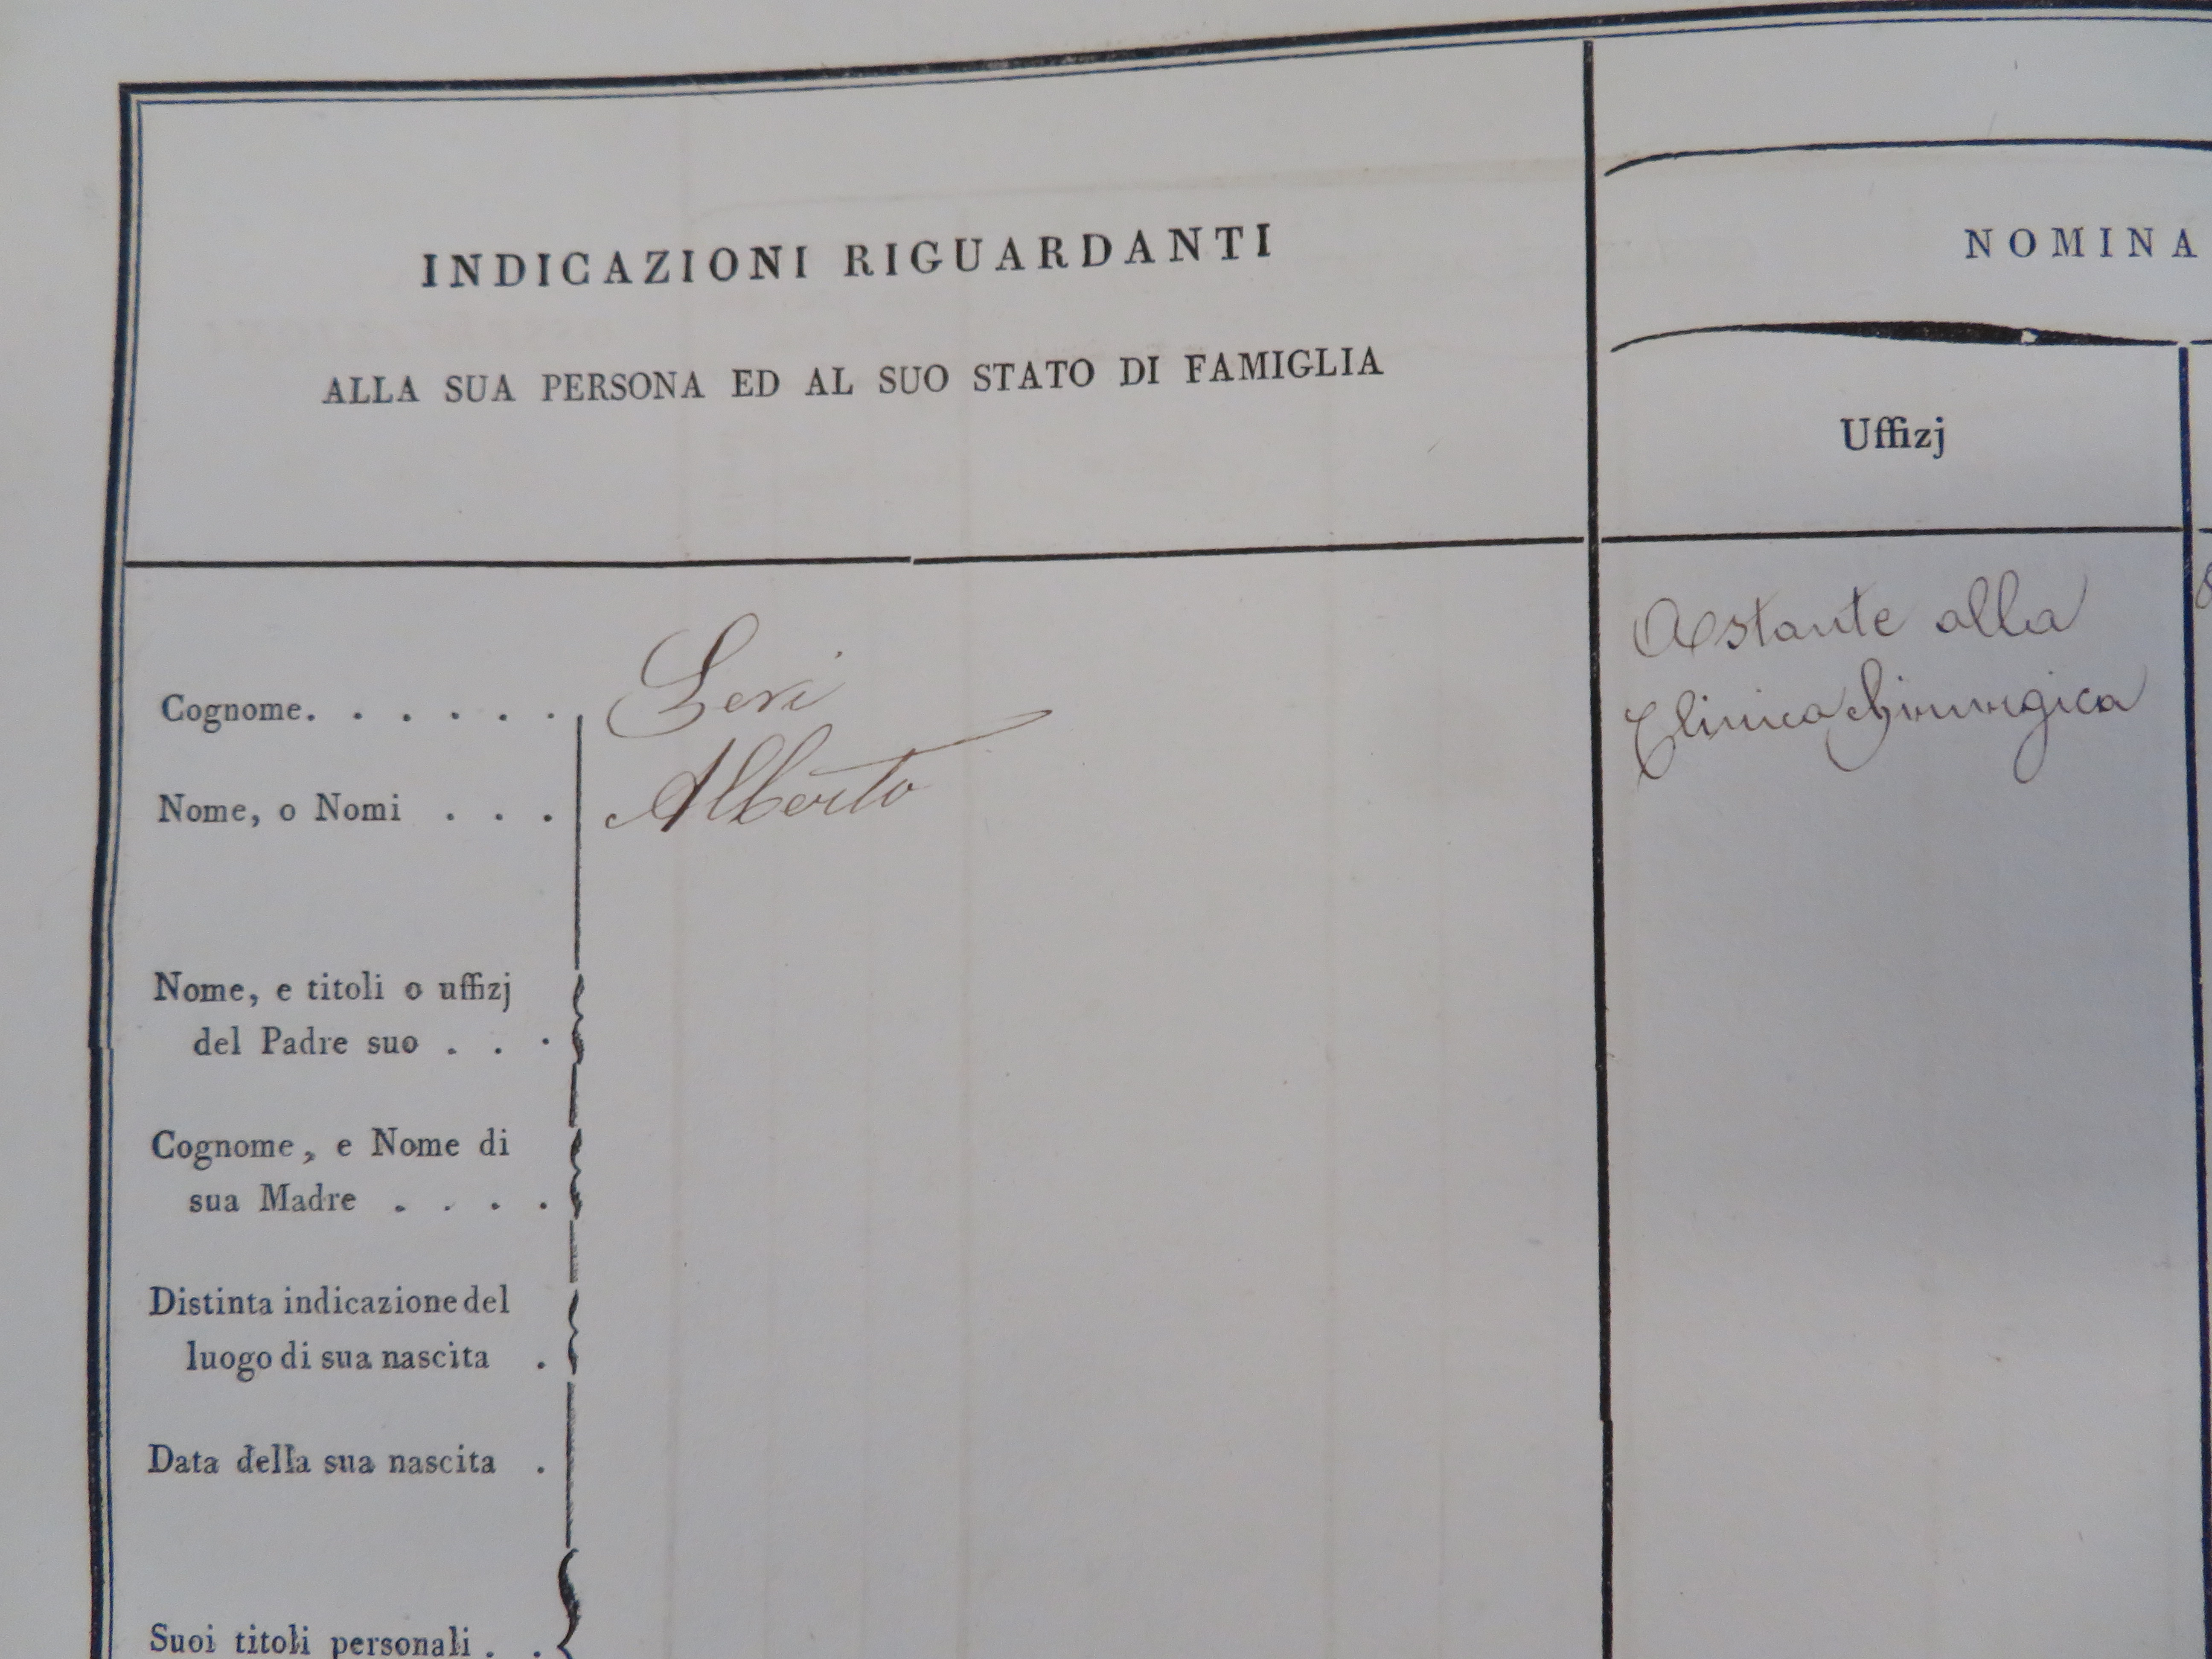 INDICAZIONI RIGUARDANTI
ALLA SUA PERSONA ED AL SUO STATO DI FAMIGLIA
NOMINA
Uffizj
Cognome. . . . . .
Nome, o Nomi . . . Alberto
Nome, e titoli o uffizj
del Padre suo . . .
Cognome, e Nome di
sua Madre . . . .
Distinta indicazione del
luogo di sua nascita .
Data della sua nascita .
Suoi titoli personali . .
Astante alla
Clinica Chirurgica